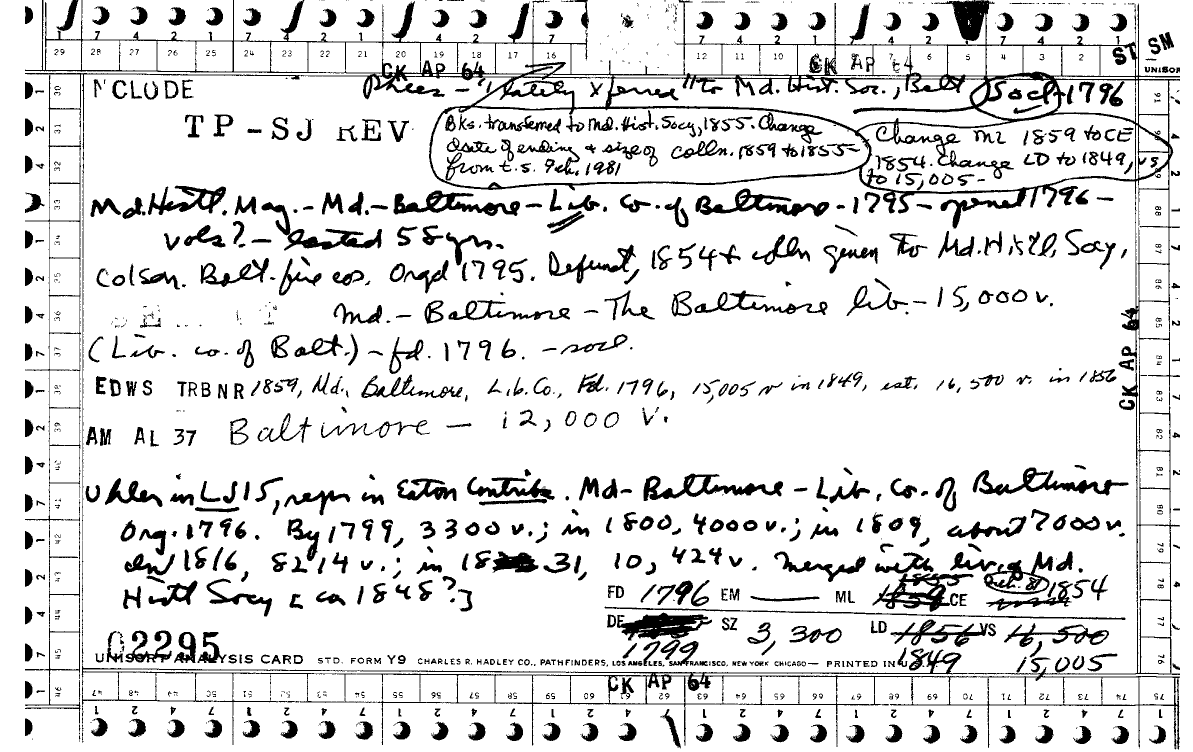 ST SM
UNISOR
CK AP 64
CK AP 64
NCLUDE
"to Md. Hist. Soc., Balt Socl-1796
TP-SJ REV
Bks. transferred to Md. Hist. Socy, 1855. Change
date of ending & size of colln. 1859 to 1855-
from t.s. Feb, 1981
Change ML 1859 to CE
1854. Change LD to 1849, VS
to 15,005-
Md. Histl. Mag.-Md.-Baltimore-Lib. Co. of Baltimore-1795-opened 1796-
vols?-lasted 58 yrs.
Colson. Balt. fire cos. Orgd 1795. Defunct, 1854 & colln given to Md. Histl. Socy,
Md.-Baltimore-The Baltimore lib.-15,000 v.
(Lib. co. of Balt.)-fd. 1796. -socl.
EDWS TRBNR 1859, Md., Baltimore, Lib. Co., Fd. 1796, 15,005 v in 1849, est. 16,500 v. in 1856
CK AP 64
AM AL 37 Baltimore - 12,000 V.
Uhler in LJ15, repr in Eaton Contribs. Md-Baltimore-Lib. Co. of Baltimore
Org. 1796. By 1799, 3300 v.; in 1800, 4000 v.; in 1809, about 7000 v.
In 1816, 8214 v.; in 1831, 10,424 v. Merged with lib. of Md.
Histl Socy [ca 1848?]
FD 1796 EM — ML 1859 1855 CE 1854
DE 1799 SZ 3,300 LD 1856 1849 VS 16,500 15,005
02295
UNISORT ANALYSIS CARD STD. FORM Y9 CHARLES R. HADLEY CO., PATHFINDERS, LOS ANGELES, SAN FRANCISCO, NEW YORK CHICAGO— PRINTED IN U
CK AP 64